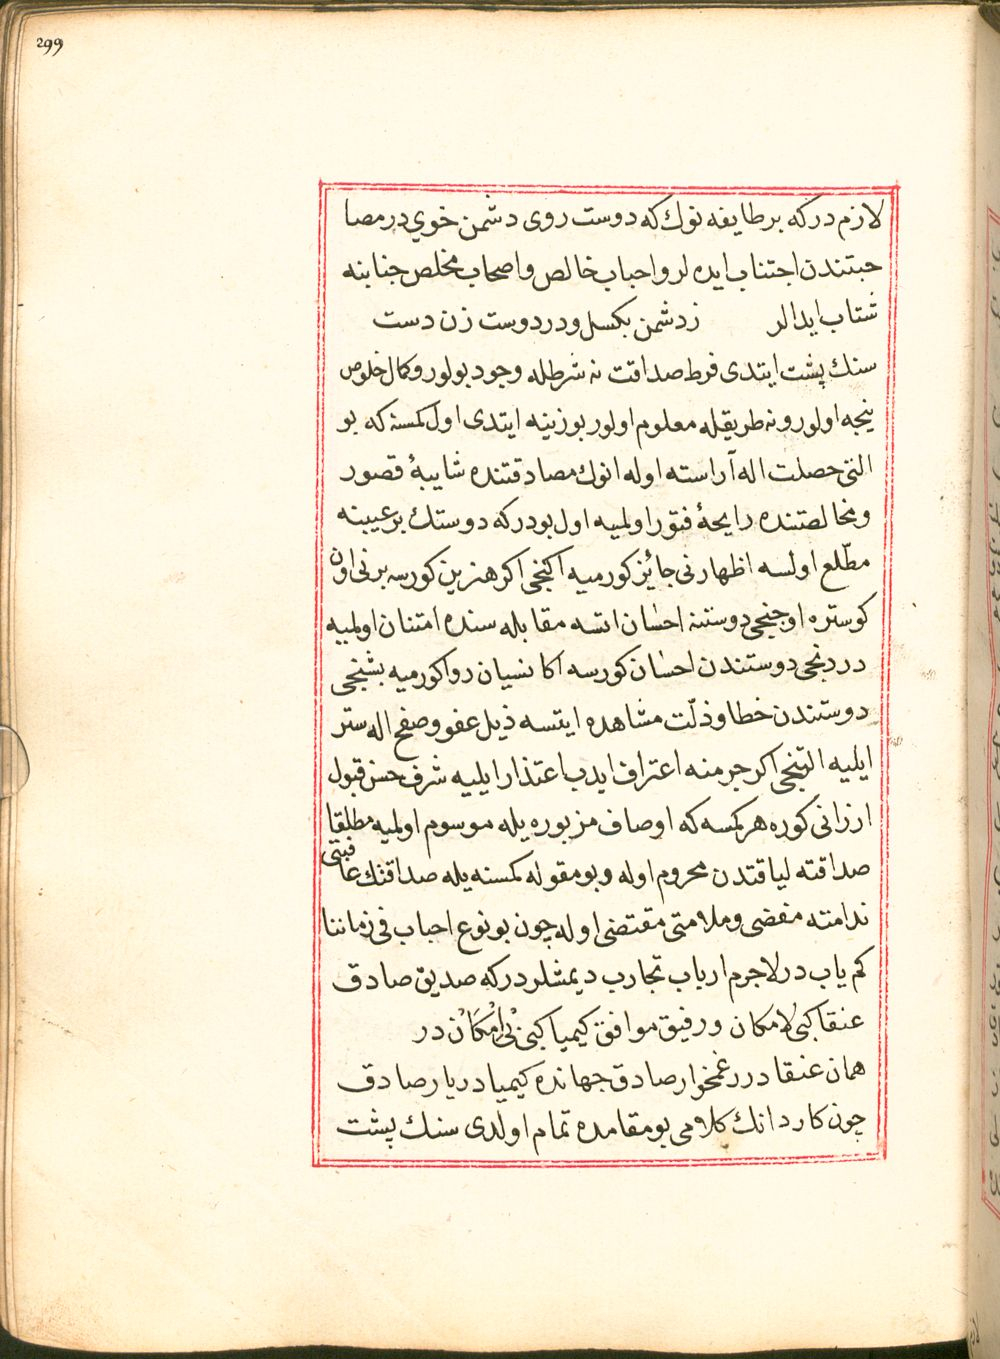 299
لازم در كه بر طايفه نوك كه دوست روى دشمن خوي در مصا
حبتندن اجتناب ايده لر و احباب خالص و اصحاب مخلص جنابنه
شتاب ايدالر زدشمن بكسل و در دوست زن دست
سنك پشت ايتدى فرط صداقت نه شرطله وجود بولور و كمال خلوص
نيجه اولور و نه طريقله معلوم اولور بوزينه ايتدى اول كمسنه كه بو
التى خصلت اله آراسته اوله انوك مصادقتنده شايبۀ قصور
و مخالصتنده رايحۀ فتور اولميه اول بودر كه دوستك بر عيبنه
مطّلع اولسه اظهارنى جائيز كورميه اكنجى اكر هنرين كورسه برنى اون
كوستره اوجنجى دوستنه احسان اتسه مقابله سنده امتنان اولميه
دردنجى دوستندن احسان كورسه اكا نسيان روا كورميه بشنجى
دوستندن خطا و ذلّت مشاهده ايتسه ذيل عفو و صفح اله ستر
ايليه التنجى اكر جرمنه اعتراف ايدب اعتذار ايليه شرف حسن قبول
ارزانى كوره هر كمسه كه اوصاف مزبوره يله موسوم اولميه مطلقا
صداقته لياقتدن محروم اوله و بو مقوله كمسنه يله صداقتك عاقبتى
ندامته مفضى و ملامتى مقتضى اوله چون بو نوع احباب فى زماننا
كم ياب در لاجرم ارباب تجارب ديمشلر در كه صديق صادق
عنقا كبى لامكان و رفيق موافق كيميا كبى بى امكان در
همان عنقا در غمخوار صادق جهانده كيميا در يار صادق
چون كاردانك كلامى بو مقامده تمام اولدى سنك پشت